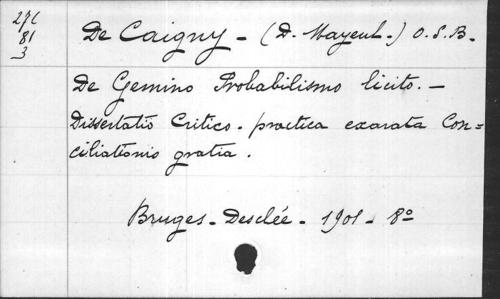 27C
81
3
De Caigny - (D. Mayeul.) O.S.B.
De Gemino Probabilismo licito. -
Dissertatio Critico-practica exarata Con=
ciliationis gratia.
Bruges - Desclée - 1901 - 8º